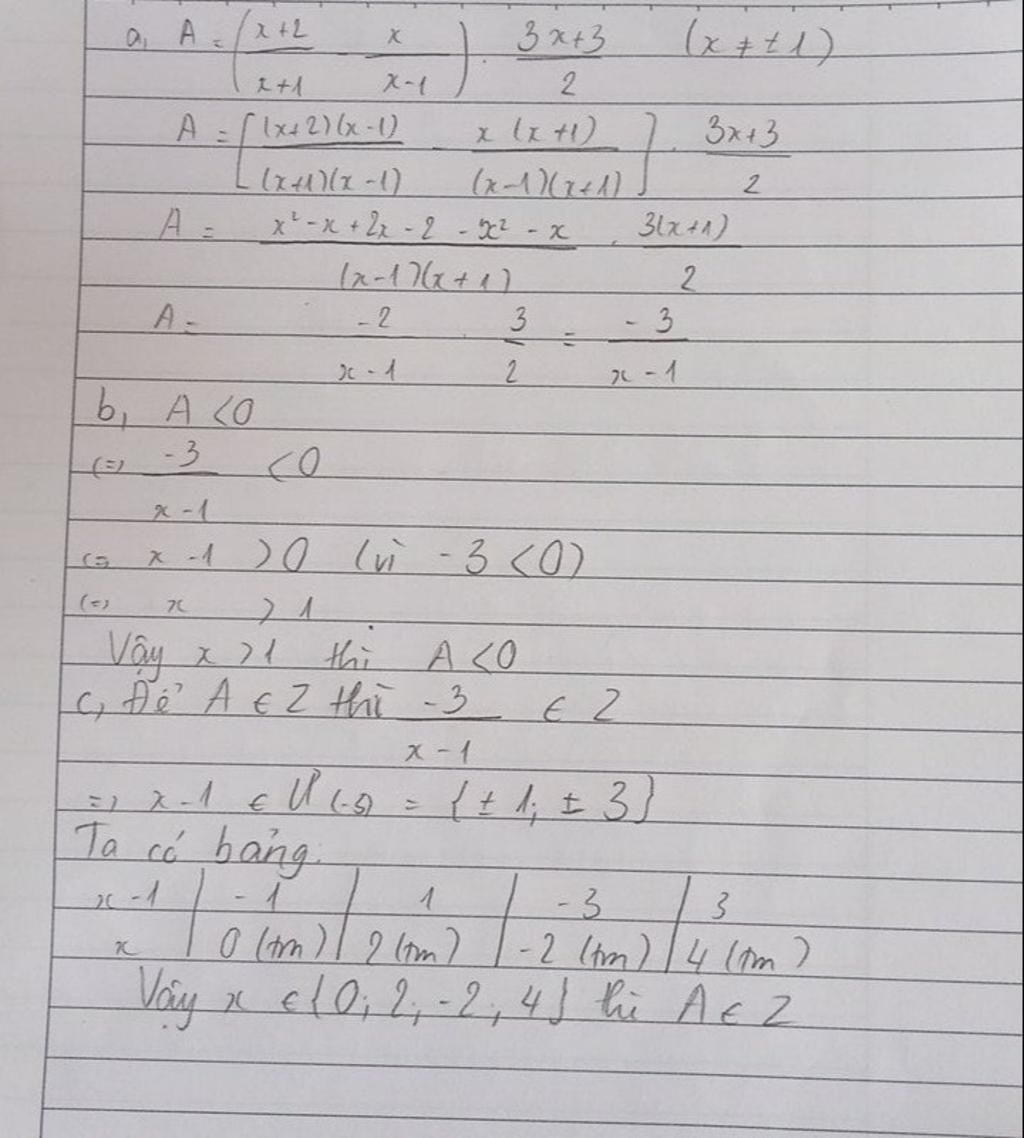 a, A = (x+2/x+1 - x/x-1) . 3x+3/2 (x ≠ ±1)
A = [(x+2)(x-1)/(x+1)(x-1) - x(x+1)/(x-1)(x+1)] . 3x+3/2
A = x² - x + 2x - 2 - x² - x/(x-1)(x+1) . 3(x+1)/2
A = -2/x-1 . 3/2 = -3/x-1
b, A < 0
(=) -3/x-1 < 0
(=) x - 1 > 0 (vì -3 < 0)
(=) x > 1
Vậy x > 1 thì A < 0
c, Để A ∈ Z thì -3/x-1 ∈ Z
=) x-1 ∈ Ư(-3) = {±1; ±3}
Ta có bảng:
x-1 | -1 | 1 | -3 | 3
x | 0 (tm) | 2 (tm) | -2 (tm) | 4 (tm)
Vậy x ∈ {0; 2; -2; 4} thì A ∈ Z